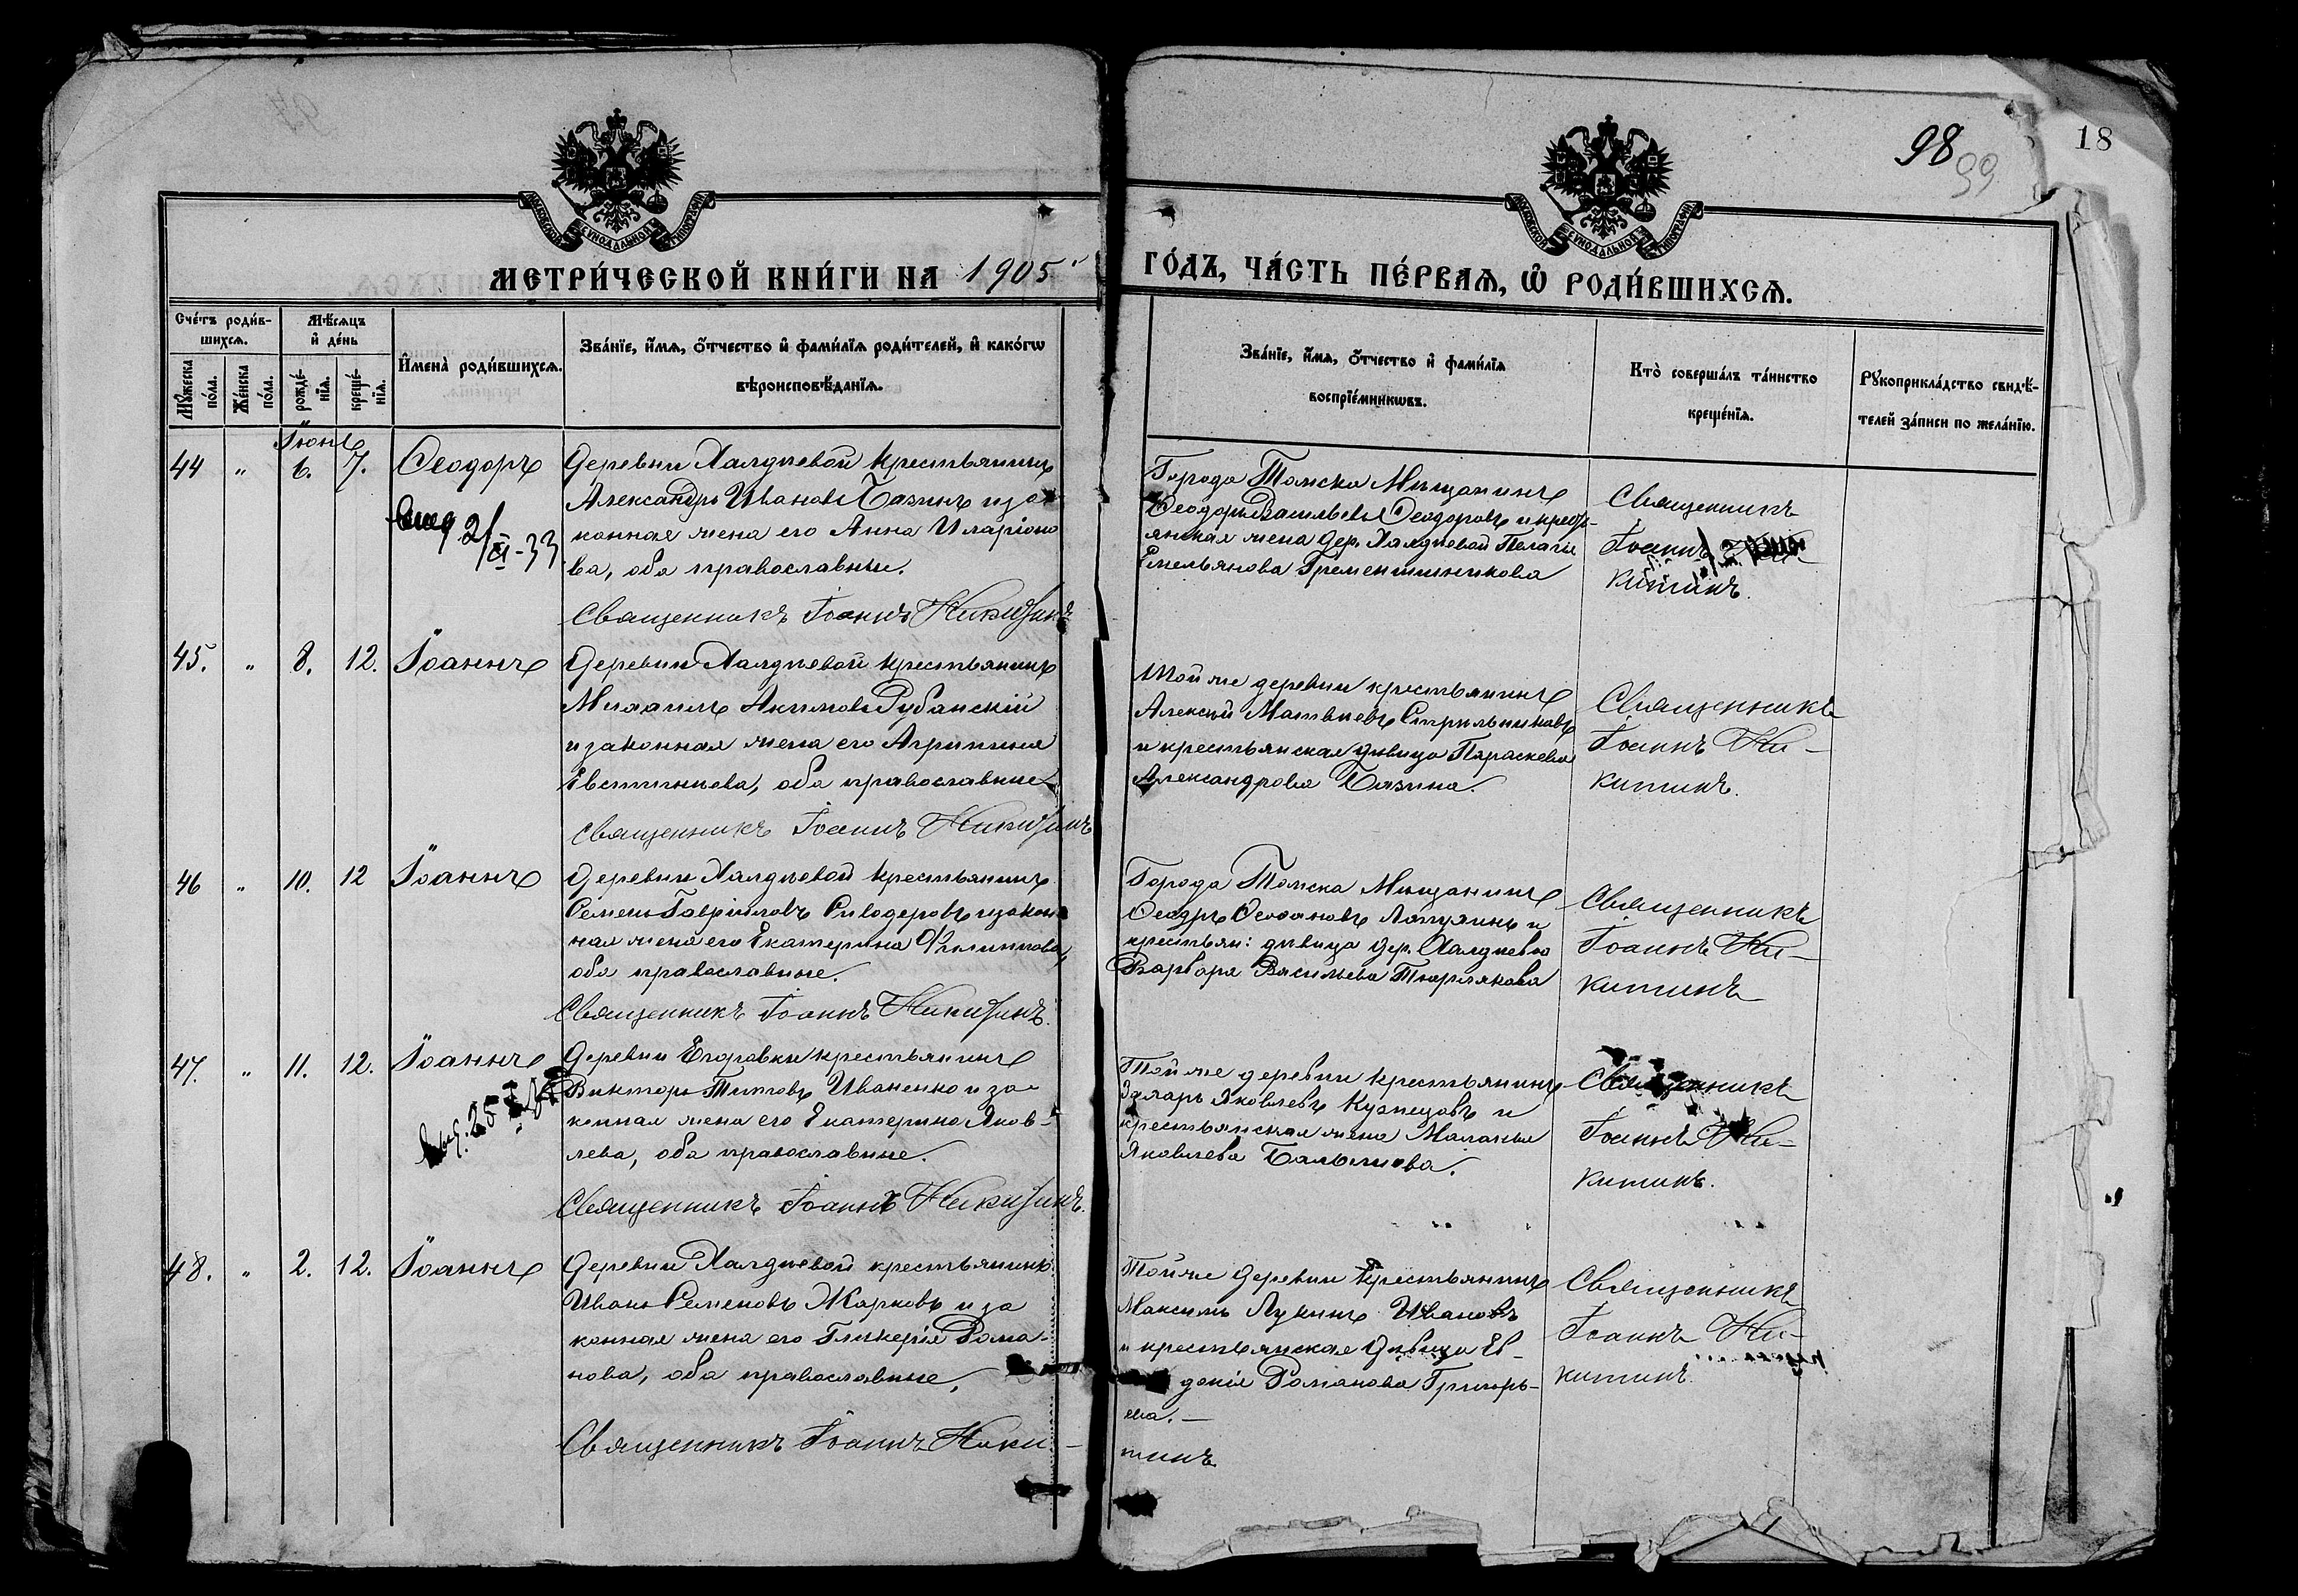 98
99
18
МОСКОВСКОЙ СѴНОДАЛЬНОЙ ТИПОГРАФІИ
МОСКОВСКОЙ СѴНОДАЛЬНОЙ ТИПОГРАФІИ
МЕТРИ́ЧЕСКОЙ КНИ́ГИ НА 1905
ГО́ДЪ, ЧА́СТЬ ПЕ́РВАѦ, Ѡ҆ РОДИ́ВШИХСѦ.
Сче́тъ роди́в-
шихсѧ.
Мꙋ́жеска по́ла.
Же́нска по́ла.
Мѣ́сѧцъ
и҆ де́нь
рожде́-
нїѧ.
креще́-
нїѧ.
И҆мена̀ роди́вшихсѧ.
Зва́нїе, и҆́мѧ, ѻ҆́тчество и҆ фами́лїѧ роди́телей, и҆ како́гѡ
вѣроисповѣ́данїѧ.
Зва́нїе, и҆́мѧ, ѻ҆́тчество и҆ фами́лїѧ
воспрїе́мникѡвъ.
Кто̀ соверша́лъ та́инство
креще́нїѧ.
Рꙋкоприкла́дство свидѣ́-
телей за́писи по жела́нїю.
Іюнь
44 " 6. 7. Ѳеодоръ
Деревни Халдѣевой крестьянинъ
Александръ Ивановъ Бязинъ и за
конная жена его Анна Иларіоно
ва, оба православные.
Священникъ Іоаннъ Никитинъ
Города Томска Мѣщанинъ
Ѳеодоръ Васильевъ Ѳеодоровъ и кресть-
янская жена дер. Халдѣевой Пелагія
Емельянова
Священникъ
Іоаннъ Ни-
китинъ.
45. " 8. 12. Іоаннъ
Деревни Халдѣевой крестьянинъ
Михаилъ Акимовъ Рубанскій
и законная жена его Агрипина
Евстигнѣева, оба православные
Священникъ Іоаннъ Никитинъ
Той же деревни крестьянинъ
Алексѣй Матвѣевъ Стрѣльниковъ
и крестьянская дѣвица Параскева
Александрова Бязина.
Священникъ
Іоаннъ Ни-
китинъ.
46 " 10. 12 Іоаннъ
Деревни Халдѣевой крестьянинъ
Семенъ Гавріиловъ Сиводеровъ и закон
ная жена его Екатерина Филиппова,
оба православные.
Священникъ Іоаннъ Никитинъ.
Города Томска Мѣщанинъ
Ѳеодръ и
крестьян: дѣвица дер. Халдѣевой
Варвара Васильева Тюрлякова
Священникъ
Іоаннъ Ни-
китинъ
47. " 11. 12. Іоаннъ
Деревни Егоровки крестьянинъ
Викторъ Титовъ Иваненко и за-
конная жена его Екатерина Яков-
лева, оба православные.
Священникъ Іоаннъ Никитинъ.
Той же деревни крестьянинъ
Захаръ Яковлевъ Кузнецовъ и
крестьянская жена Маланья
Яковлева
Священникъ
Іоаннъ Ни-
китинъ.
48. " 2. 12. Іоаннъ
Деревни Халдѣевой крестьянинъ
Иванъ Семеновъ Жарковъ и за
конная жена его Гликерія Рома-
нова, оба православные,
Священникъ Іоаннъ Ники-
тинъ
Той же деревни крестьянинъ
Максимъ Лукинъ Ивановъ
и крестьянская дѣвица Ев-
докія Романова Григорь-
ева.
Священникъ
Іоаннъ Ни-
китинъ.